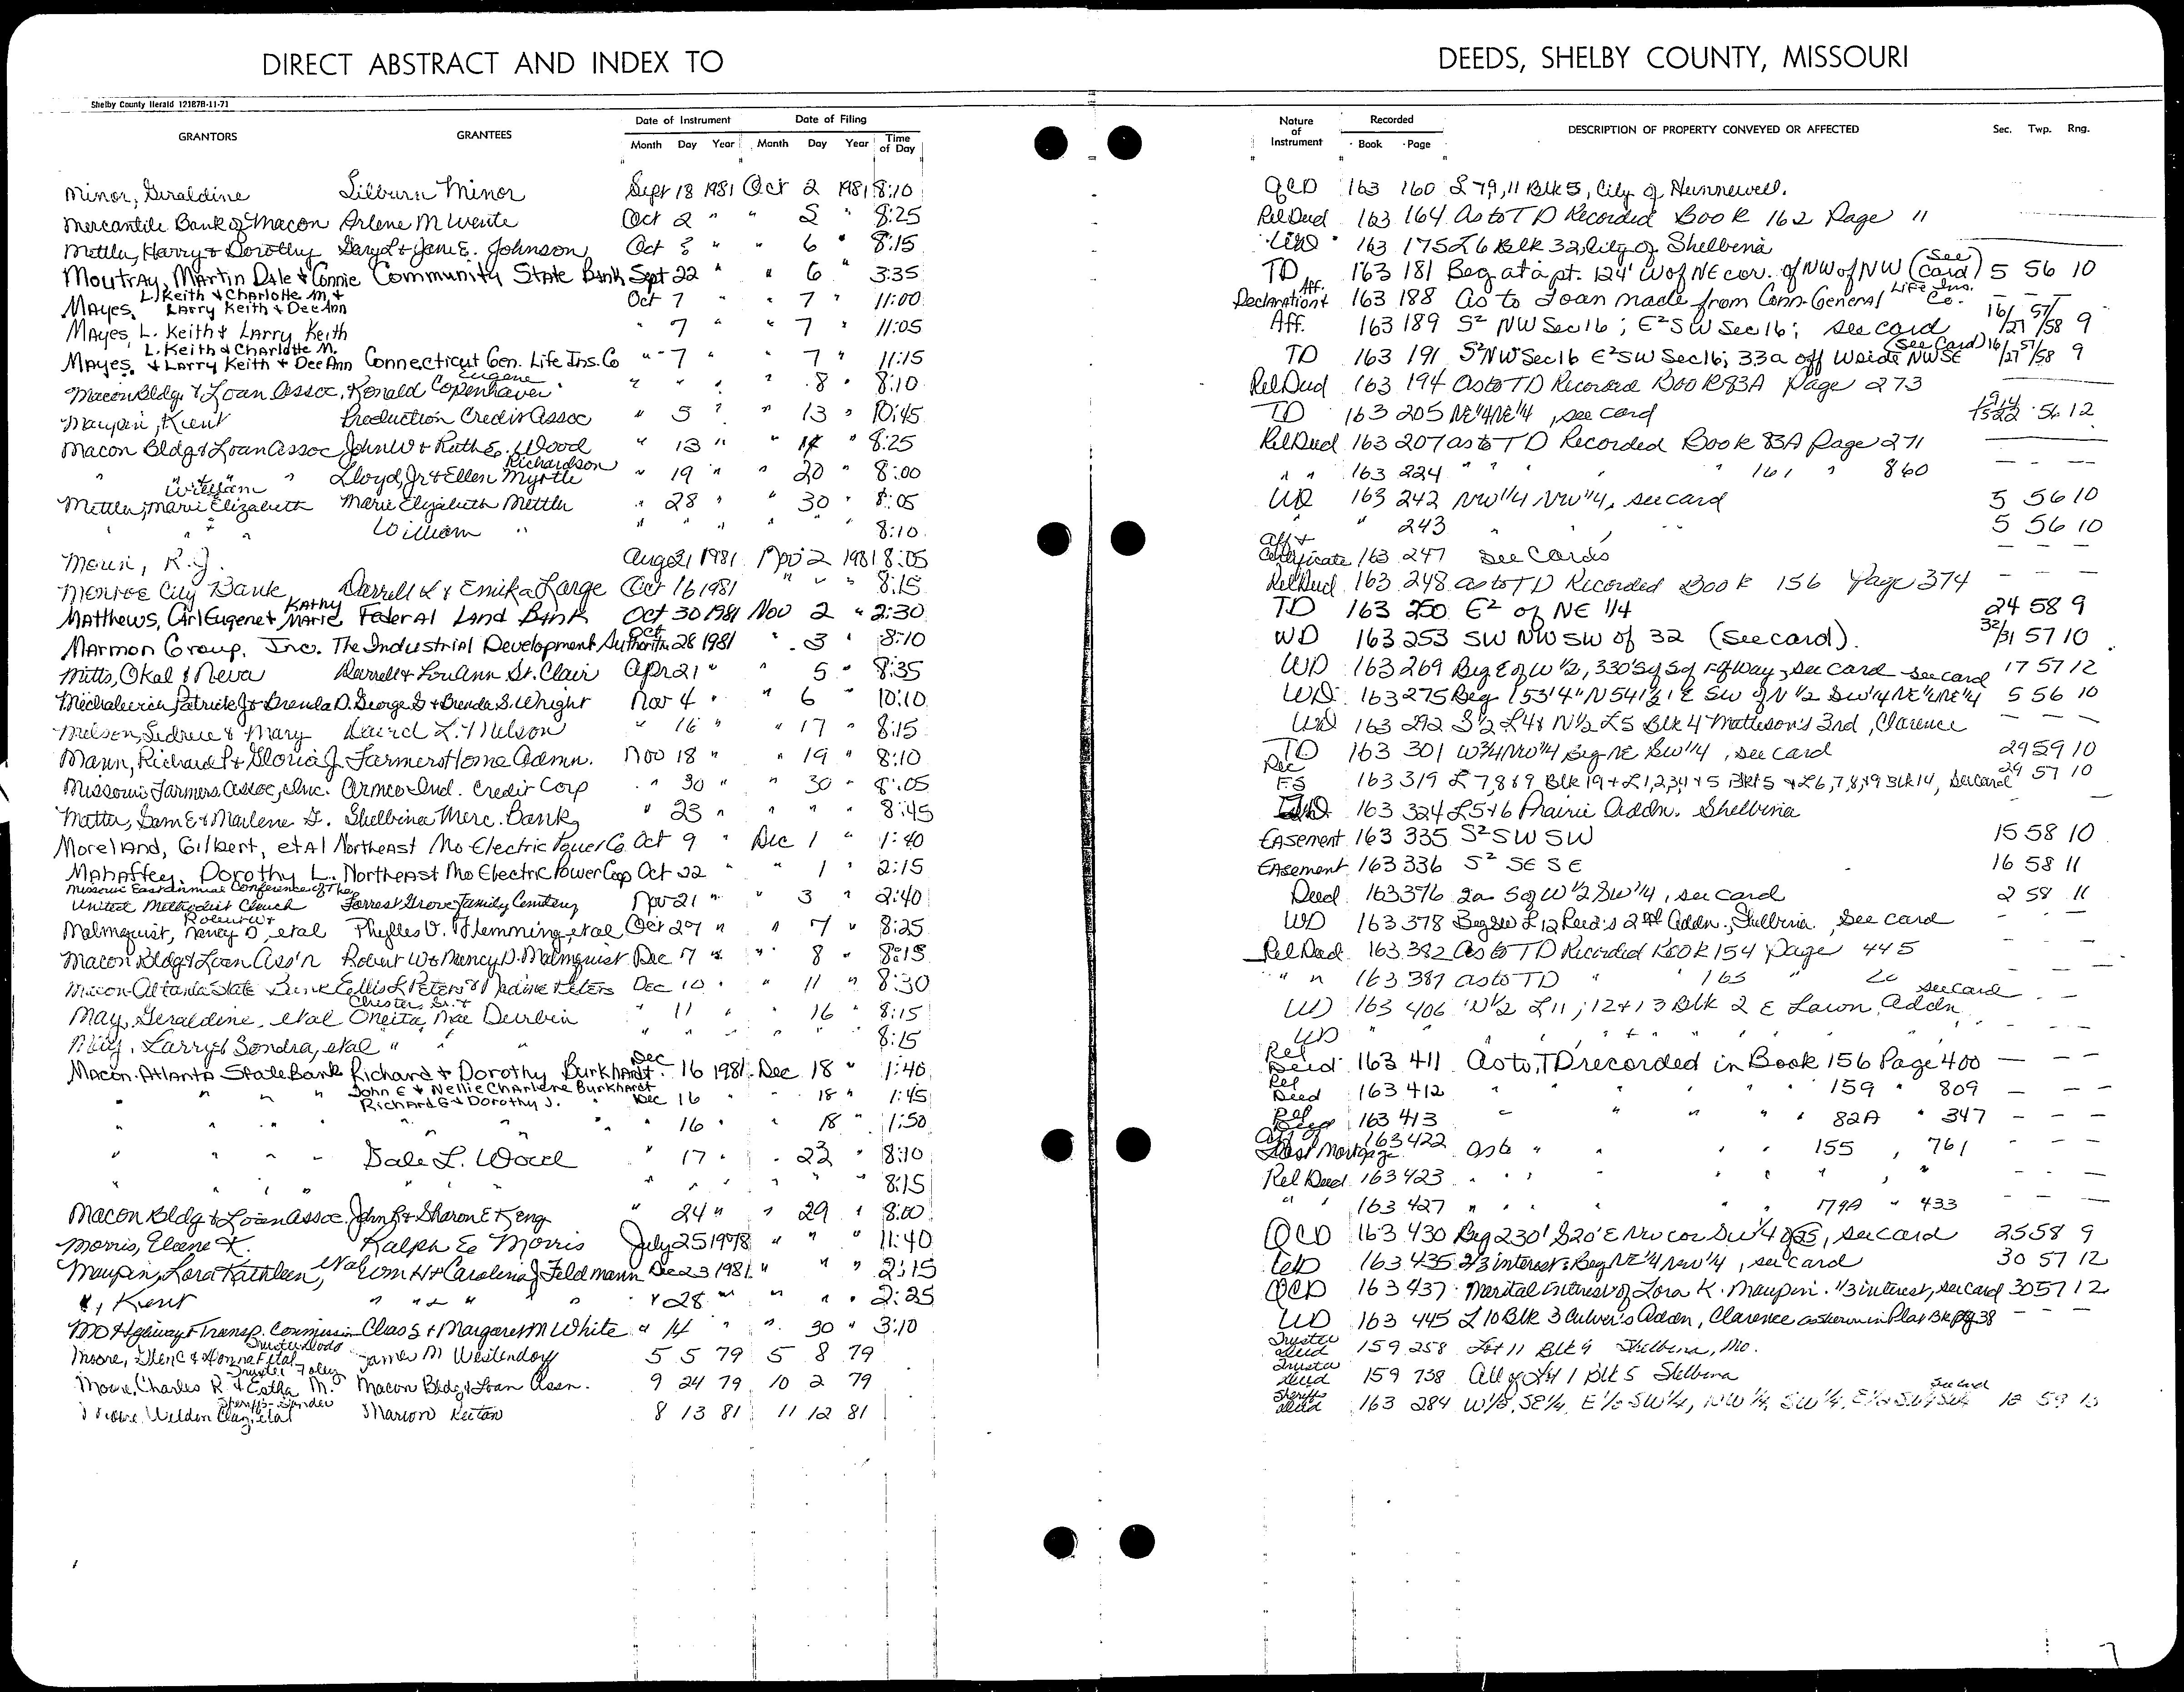 DIRECT ABSTRACT AND INDEX TO DEEDS, SHELBY COUNTY, MISSOURI
Shelby County Herald 12187B-11-71
GRANTORS GRANTEES Date of Instrument Date of Filing Nature of Instrument Recorded DESCRIPTION OF PROPERTY CONVEYED OR AFFECTED Sec. Twp. Rng.
Month Day Year Month Day Year Time of Day Book Page
Minor, Geraldine Lilburn Minor Sept 18 1981 Oct 2 1981 8:10 QCD 163 160 L 79, 11 Blk 5, City of Hunnewell.
Mercantile Bank of Macon Arlene M Wente Oct 2 " " 2 " 8:25 Rel Deed 163 164 As to TD Recorded Book 162 Page 11
Mettler, Harry & Dorothy Gary L & Jane E. Johnson Oct " " 6 " 8:15 WD 163 175 L 6 Blk 32, City of Shelbina
Moutray, Martin Dale & Connie Community State Bank Sept 22 " " 6 " 3:35 TD 163 181 Beg at a pt. 124' W of NE cor. of NW of NW (See Card) 5 56 10
Mayes, L. Keith & Charlotte M. & Larry Keith & DeeAnn Oct 7 " " 7 " 11:00 Declaration & Aff. 163 188 As to Loan made from Conn-General Life Ins. Co. — — —
Mayes, L. Keith & Larry Keith " 7 " " 7 " 11:05 Aff. 163 189 S² NW Sec 16; E² SW Sec 16; see card 16/21 57/58 9
Mayes, L. Keith & Charlotte M. & Larry Keith & DeeAnn Connecticut Gen. Life Ins. Co " 7 " " 7 " 11:15 TD 163 191 S² NW Sec 16 E² SW Sec 16; 33a off W side NWSE (See Card) 16/27 57/58 9
Macon Bldg. & Loan Assoc. Ronald Eugene Copenhaver " " " " 8 " 8:10 Rel Deed 163 194 As to TD Recorded Book 83A Page 273
Maupin, Kent Production Credit Assoc " 5 " " 13 " 10:45 TD 163 205 NE 1/4 NE 1/4, see card 56 12
Macon Bldg & Loan Assoc John W & Ruth E. Wood " 13 " " 14 " 8:25 Rel Deed 163 207 as to TD Recorded Book 83A Page 271
" " " Lloyd, Jr & Ellen Myrtle Richardson " 19 " " 20 " 8:00 " " 163 224 " " " " 161 " 860 — — —
Mettler, William & Marie Elizabeth Marie Elizabeth Mettler " 28 " " 30 " 8:05 WD 163 242 NW 1/4 NW 1/4, see card 5 56 10
" " " William " " " " " " " 8:10 " " 243 " " " 5 56 10
R.J. Aug 31 1981 Nov 2 1981 8:05 Aff & Certificate 163 247 See Cards — — —
Monroe City Bank Darrell L & Emika Large Oct 16 1981 " " " 8:15 Rel Deed 163 248 as to TD Recorded Book 156 Page 374 — — —
Matthews, Carl Eugene & Kathy Marie Federal Land Bank Oct 30 1981 Nov 2 " 2:30 TD 163 250 E² of NE 1/4 24 58 9
Marmon Group, Inc. The Industrial Development Authority Oct 28 1981 " 3 " 8:10 WD 163 253 SW NW SW of 32 (see card). 32/31 57 10
Mitts, Okal & Neva Darrell & Lou Ann St. Clair Apr 21 " " 5 " 8:35 WD 163 269 Beg E of W 1/2, 330' Sq Sof Hgway, see card see card 17 57 12
Patrick J & Brenda D. George G & Brenda S. Wright Nov 4 " " 6 " 10:10 WD 163 275 Beg 153'4" N 54 1/2' E SW of N 1/2 SW 1/4 NE 1/4 NE 1/4 5 56 10
Melson, & Mary Laird L. Melson " 16 " " 17 " 8:15 WD 163 292 S 1/2 L4 & N 1/2 L5 Blk 4 Matteson's 3rd, Clarence — — —
Mann, Richard P & Gloria J. Farmers Home Admn. Nov 18 " " 19 " 8:10 TD 163 301 W 3/4 NW 1/4 Beg NE SW 1/4, see card 29 59 10
Missouri Farmers Assoc, Inc. Armco Ind. Credit Corp " 30 " " 30 " 8:05 Rec FS 163 319 L 7,8 & 9 Blk 19 + L 1,2,3,4 & 5 Blk 15 & L 6,7,8,&9 Blk 14, See Card 29 57 10
Sam E & Marlene F. Shelbina Merc. Bank " 23 " " " " 8:45 163 324 L 5 & 6 Prairie Addn. Shelbina
Moreland, Gilbert, et al Northeast Mo Electric Power Co Oct 9 " Dec 1 " 1:40 Easement 163 335 S² SW SW 15 58 10
Mahaffey, Dorothy L. Northeast Mo Electric Power Coop Oct 22 " " 1 " 2:15 Easement 163 336 S² SE SE 16 58 11
Missouri East Annual Conference of The United Methodist Church Forrest Grove Family Cemetery Nov 21 " " 3 " 2:40 Deed 163 376 2a S of W 1/2 SW 1/4, see card 2 58 11
Malmquist, Robert W & Nancy D, et al Phylles V. Flemming, et al Oct 29 " " 7 " 8:25 WD 163 378 Beg SW L 12 Reed's 2nd Addn., Shelbina, See card — — —
Macon Bldg & Loan Ass'n Robert W & Nancy D. Malmquist Dec 7 " " 8 " 8:15 Rel Deed 163 382 As to TD Recorded Book 154 Page 445 — — —
Macon-Atlanta State Bank Ellis L Peters & Nadine Peters Dec 10 " " 11 " 8:30 " " 163 389 as to TD " 163 " 20
May, Geraldine, et al Chester Sr. & Oneita Mae Durbin " 11 " " 16 " 8:15 WD 163 406 N 1/2 L 11; 12 & 13 Blk 2 E Lawn Addn see card — —
May, Larry & Sondra, et al " " " " " " " " 8:15 WD " " " " " " " "
Macon-Atlanta State Bank Richard & Dorothy Burkhardt Dec 16 1981 Dec 18 " 1:40 Rel Deed 163 411 As to TD recorded in Book 156 Page 400 — — —
" " " " John E & Nellie Charlene Burkhardt Dec 16 " " 18 " 1:45 Rel Deed 163 412 " " " " 159 " 809 — — —
" " " " Richard G & Dorothy J. " " 16 " " 18 " 1:50 Rel Deed 163 413 " " " " 82A " 347 — — —
" " " " Dale L. Wood " 17 " " 22 " 8:10 Aff of Lost Mortgage 163 422 As to " " " 155 " 761 — — —
" " " " " " " " " " " " 8:15 Rel Deed 163 423 " " " " " " — — —
Macon Bldg & Loan Assoc. John R & Sharon E King " 24 " " 29 " 8:00 " " 163 427 " " " " 179A " 433 — — —
Morris, Elene K. Ralph E. Morris July 25 1978 " " " 11:40 QCD 163 430 Beg 230' S 20' E NW cor SW 1/4 of 25, see card 25 58 9
Maupin, Lora Kathleen, et al Wm H & Caroline J Feldmann Dec 23 1981 " " " 2:15 WD 163 435 2/3 interest: Beg NE 1/4 NW 1/4, see card 30 57 12
", Kent " " " " " 28 " " " " 2:25 QCD 163 437 Marital Interest of Lora K. Maupin. 1/3 interest, see card 30 57 12
MO Highway & Transp. Commission Clao S & Margaret M White " 14 " " 30 " 3:10 WD 163 445 L 10 Blk 3 Culver's Addn, Clarence as shown in Plat Bk pg 38 — — —
Moore, Glen C & Donna F et al Trustee Dodo James M Westendorf 5 5 79 5 8 79 Trustee Deed 159 258 Lot 11 Blk 9 Shelbina, Mo.
Moore, Charles R & Eatha M. Trustee Foley Macon Bldg & Loan Assn. 9 24 79 10 2 79 Trustee Deed 159 738 All of Lot 1 Blk 5 Shelbina
Moore, Weldon Clay, et al Sheriff Marion Keiton 8 13 81 11 12 81 Sheriffs Deed 163 284 W 1/2, SE 1/4, E 1/2 SW 1/4, NW 1/4, SW 1/4, See Card 59
7